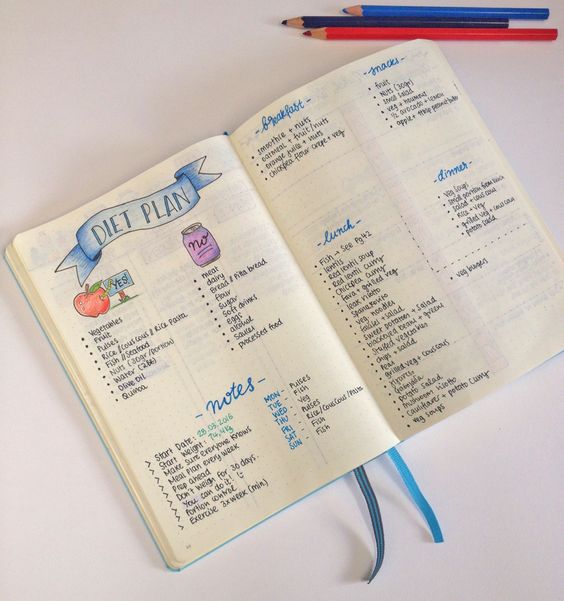 DIET PLAN
YES!
Vegetables
Fruit
Pulses
Rice / couscous / Rice Pasta
Fish / Seafood
Nuts (30gr / portion)
Water (2l+)
Olive Oil
Quinoa
no
meat
dairy
Bread & Pita bread
flour
Sugar
Soft drinks
eggs
alcohol
Sauces
processed food
- notes -
Start Date: 28.08.2016
Start Weight: 74,4kg
Make sure everyone knows
Meal Plan every week
Prep ahead
Don't weigh for 30 days.
You can do it!
Portion control
Exercise 3x week (min)
MON - Pulses
TUE - Fish
WED - Veg
THU - Pulses
FRI - Rice/couscous/Pasta
SAT - Fish
SUN - Fish
- breakfast -
smoothie + nuts
oatmeal + fruit/nuts
orange juice + nuts
chickpea flour crepe + veg
- snacks -
fruit
Nuts (30gr)
small salad
veg + hoummus
1/2 avocado + lemon
apple + 1tbsp peanut butter
- lunch -
Fish → See Pg 42
lentils
Red lentil soup
Red lentil curry
Chickpea curry
fava + grilled veg
leek risotto
Spanakorizo
veg noodles
falafel + salad
Sweet potatoes + salad
blackeyed beans + greens
Stuffed vegetables
chips + salad
Pizza
grilled veg + couscous
potato salad
mushroom risotto
cauliflower + potato curry
veg soups
- dinner -
veg soup
small portion from lunch
salad + couscous
Rice + veg
grilled veg + couscous
potato salad
veg burgers